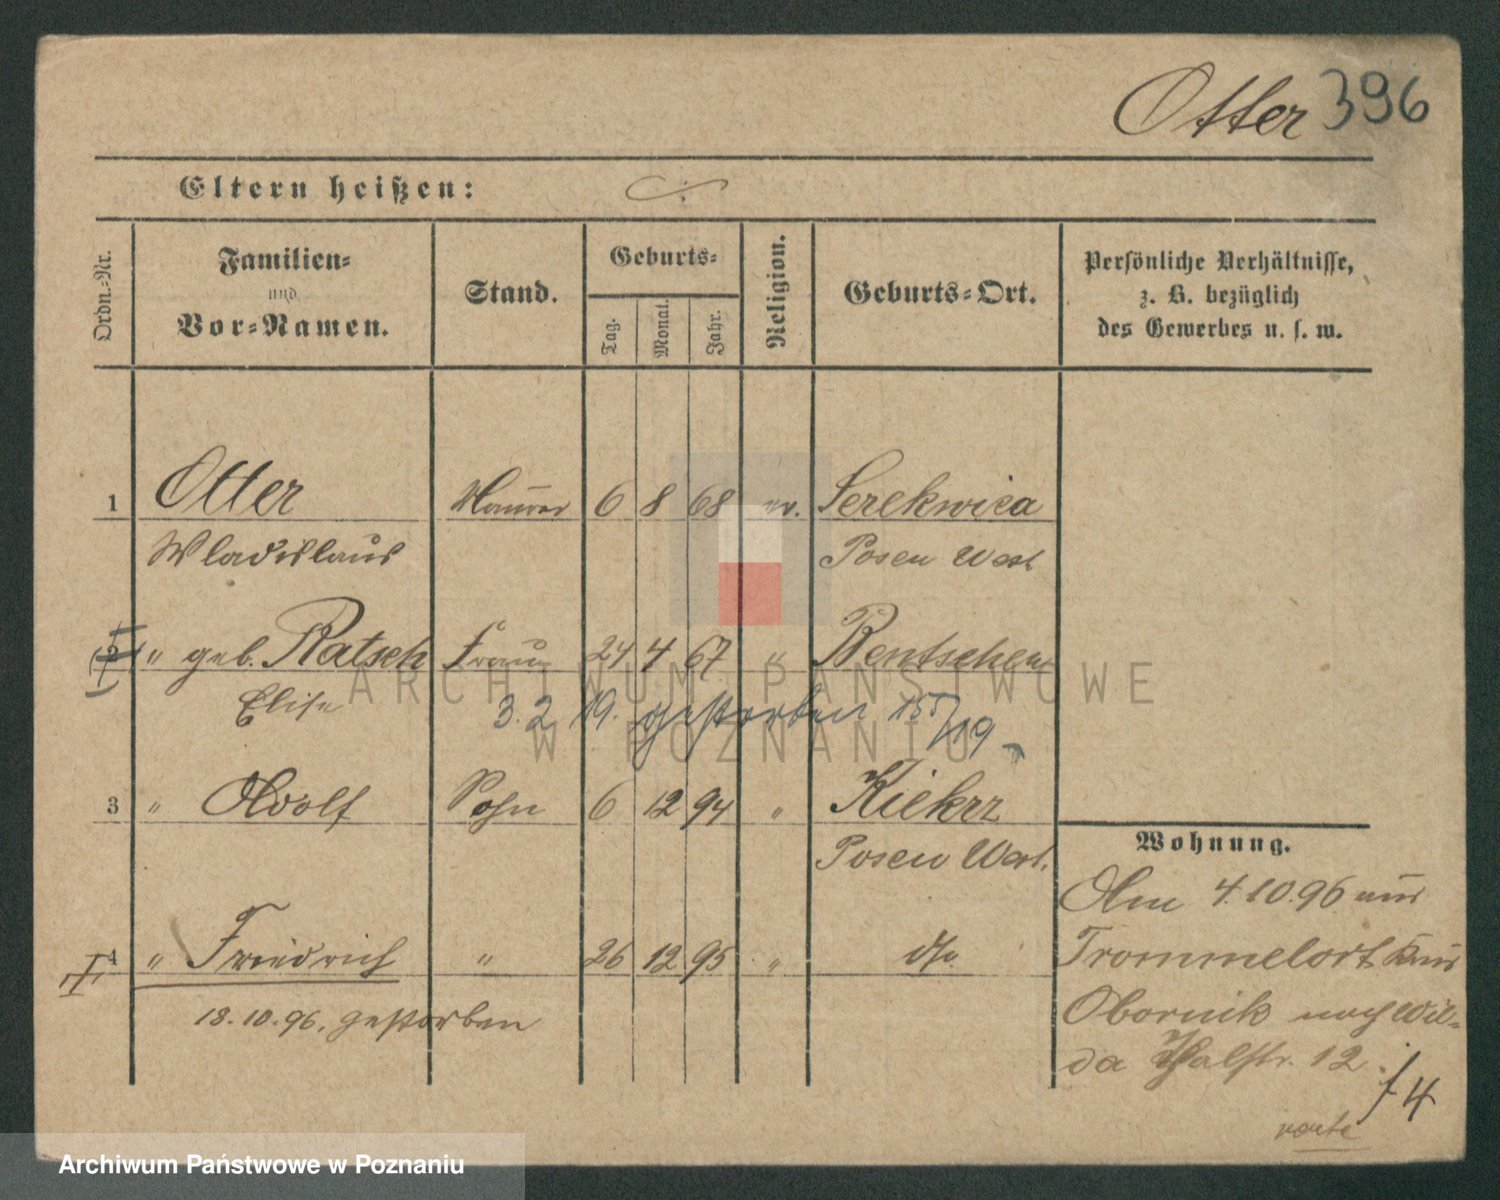 Otter 396
Eltern heißen:
Ordn.-Nr.
Familien-
und
Vor-Namen.
Stand.
Geburts-
Tag.
Monat.
Jahr.
Religion.
Geburts-Ort.
Persönliche Verhältnisse,
z. B. bezüglich
des Gewerbes u. s. w.
1 Otter Maurer 6 8 68 ev. Serekwica
Wladislaus Posen West
2 " geb. Ratsch Frau 24 4 67 " Bentschen
Elise 3.2.19. gestorben 155/19
3 " Adolf Sohn 6 12 94 " Kiekrz
Posen West.
4 " Friedrich " 26 12 95 " d/o.
18.10.96, gestorben
Wohnung.
Am 4.10.96 aus
Trommelort Kreis
Obornik nach Wil-
da Thalstr. 12.
f 4
ARCHIWUM PAŃSTWOWE
W POZNANIU
Archiwum Państwowe w Poznaniu